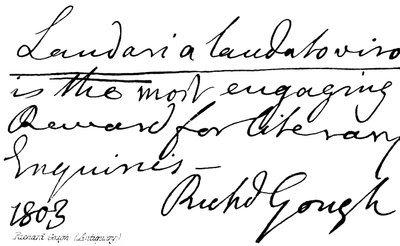 Laudari a laudato viro
is the most engaging
Reward for literary
Enquiries –
Richd Gough
1803
Richard Gough (Antiquary)